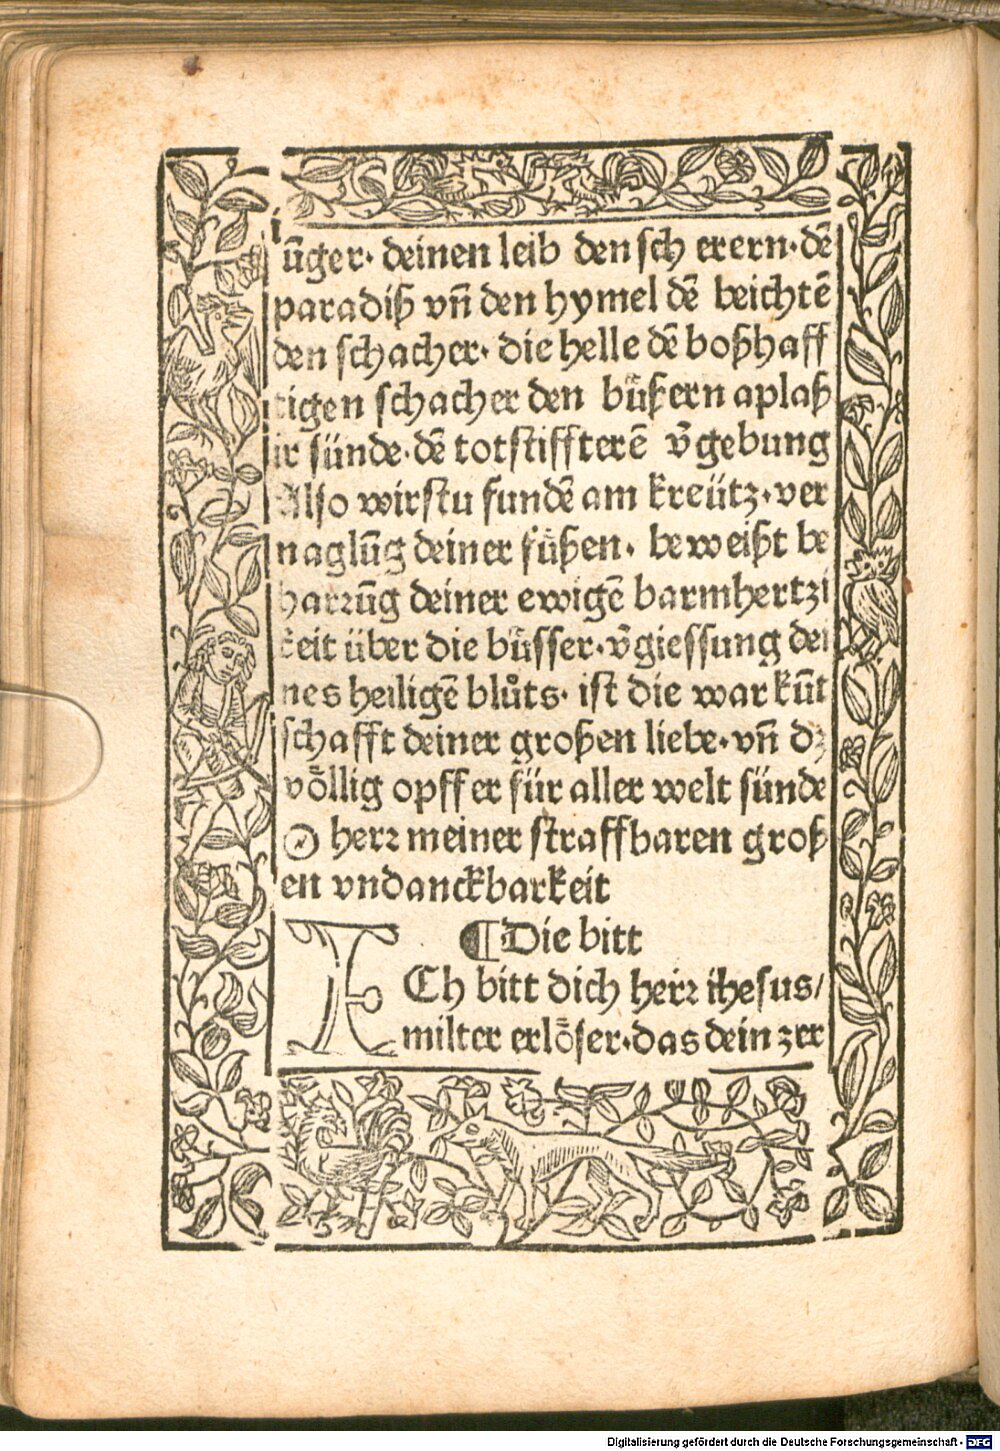 iűger· deinen leib den sch erern· dē
paradiß vn̄ den hymel dē beichtē
den schacher· die helle dē boßhaff
tigen schacher den bůßern aplaß
ir sünde· dē totstiffterē v̄gebung
Also wirstu fundē am kreütz· ver
naglūg deiner fůßen· beweißt be
harrūg deiner ewigē barmhertzi
keit über die bůsser· v̄giessung dei
nes heiligē blůts· ist die war kūt
schafft deiner großen liebe· vn̄ dz
vo̊llig opffer für aller welt sünde
O herr meiner straffbaren groß
en vndanckbarkeit
¶ Die bitt
ICh bitt dich herr ihesus/
milter erlo̊ser· das dein zer
Digitalisierung gefördert durch die Deutsche Forschungsgemeinschaft - DFG